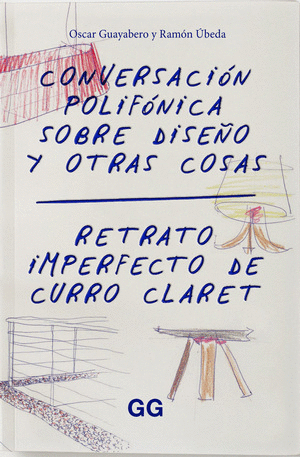 Oscar Guayabero y Ramón Úbeda
CONVERSACIÓN
POLIFÓNICA
SOBRE DISEÑO
Y OTRAS COSAS
RETRATO
iMPERFECTO DE
CURRO CLARET
GG